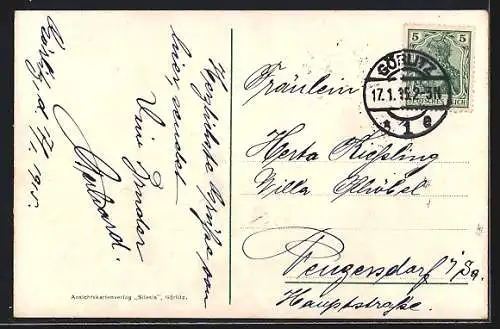 Görlitz, d. 17/1. 1915.
Herzlichste Grüße von
hier, sendet
Dein Bruder
5 5
GÖRLITZ
17.1.15. 2-3N
* 1 e
DEUTSCHES REICH
Fräulein
Herta Kießling
Villa Schöbel
Neugersdorf i/Sa.
Hauptstraße.
Ansichtskartenverlag „Silesia", Görlitz.